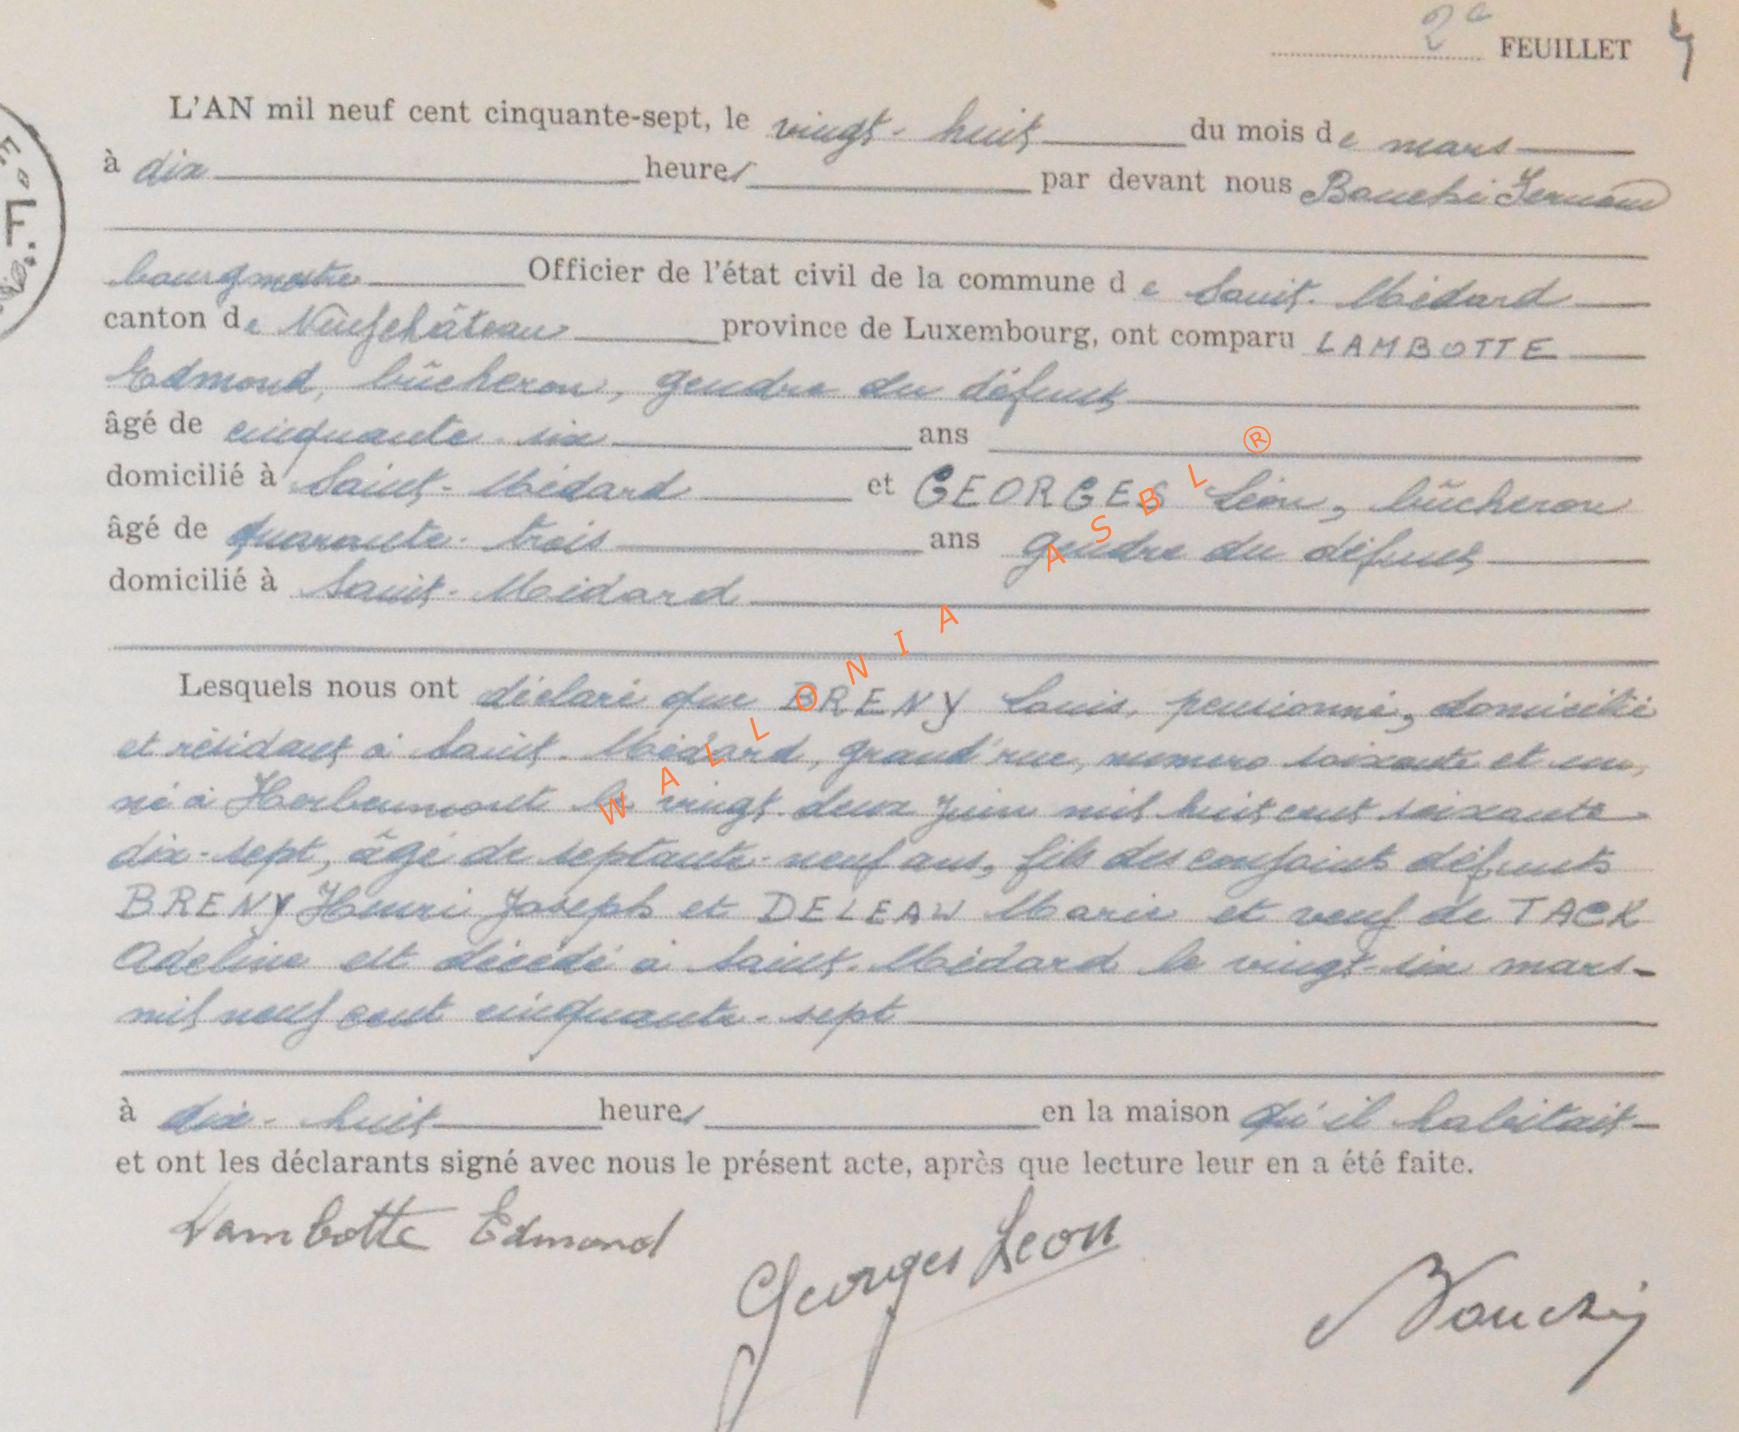 2e FEUILLET 4
L'AN mil neuf cent cinquante-sept, le vingt-huit du mois de mars
à dix heures par devant nous Bouchi Fernand
bourgmestre Officier de l'état civil de la commune de Saint-Médard
canton de Neufchâteau province de Luxembourg, ont comparu LAMBOTTE
Edmond, bûcheron, gendre du défunt
âgé de cinquante-six ans
domicilié à Saint-Médard et GEORGES Léon, bûcheron
âgé de quarante-trois ans gendre du défunt
domicilié à Saint-Médard
Lesquels nous ont déclaré que BRENY Louis, pensionné, domicilié
et résidant à Saint-Médard, grand'rue, numéro soixante et un,
né à Herbeumont le vingt-deux juin mil huit cent soixante
dix-sept, âgé de septante-neuf ans, fils des conjoints défunts
BRENY Henri Joseph et DELEAU Marie et veuf de TACK
Adeline est décédé à Saint-Médard le vingt-six mars
mil neuf cent cinquante-sept
à dix-huit heures en la maison qu'il habitait
et ont les déclarants signé avec nous le présent acte, après que lecture leur en a été faite.
Lambotte Edmond
Georges Leon
WALLONIA ASBL ®